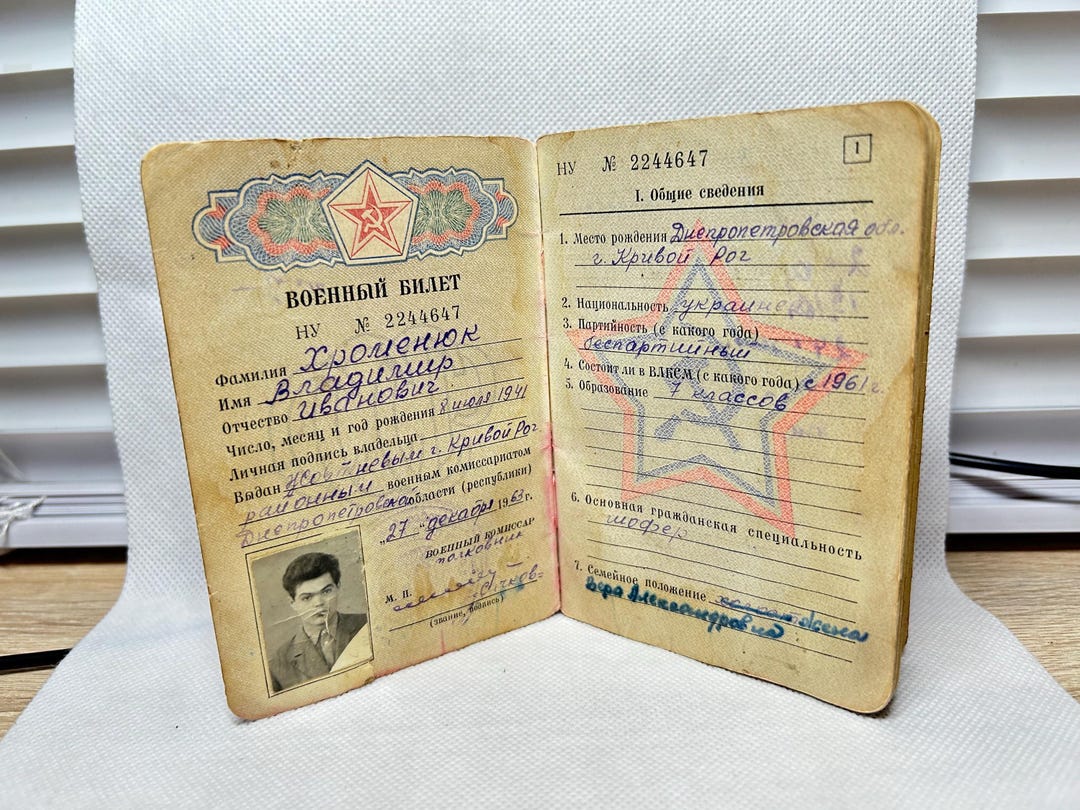 ВОЕННЫЙ БИЛЕТ
НУ № 2244647
Фамилия Хроменюк
Имя Владимир
Отчество Иванович
Число, месяц и год рождения 8 июля 1941
Личная подпись владельца
Выдан Жовтневым г. Кривой Рог
районным военным комиссариатом
Днепропетровской области (республики)
„27" декабря 1963 г.
ВОЕННЫЙ КОМИССАР
полковник
М. П.
(звание, подпись)
НУ № 2244647
1
I. Общие сведения
1. Место рождения Днепропетровская обл.
г. Кривой Рог
2. Национальность украинец
3. Партийность (с какого года)
беспартийный
4. Состоит ли в ВЛКСМ (с какого года) с 1961 г.
5. Образование 7 классов
6. Основная гражданская специальность
шофер
7. Семейное положение жена
Вера Александровна